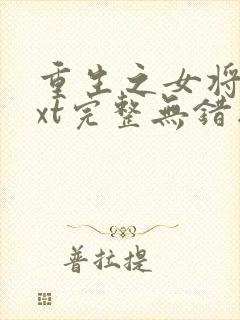 重生之女将
xt完整無錯
普拉提